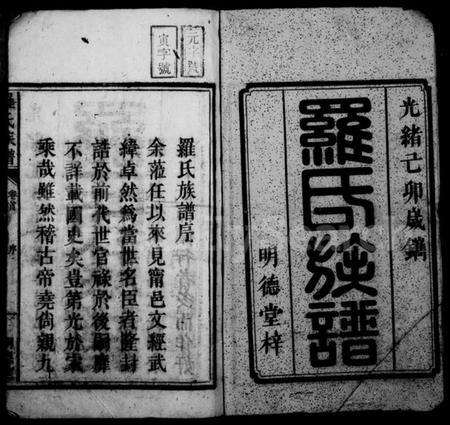 光緒己卯歲鐫
羅氏族譜
明德堂梓
寅字號
羅氏族譜序
余蒞任以來見甯邑文經武
緯卓然為當世名臣者隆封
誥於前代世官祿於後嗣靡
不詳載國史矣豈第光於家
乘哉雖然稽古帝堯尚親九
羅氏族譜 卷首 序